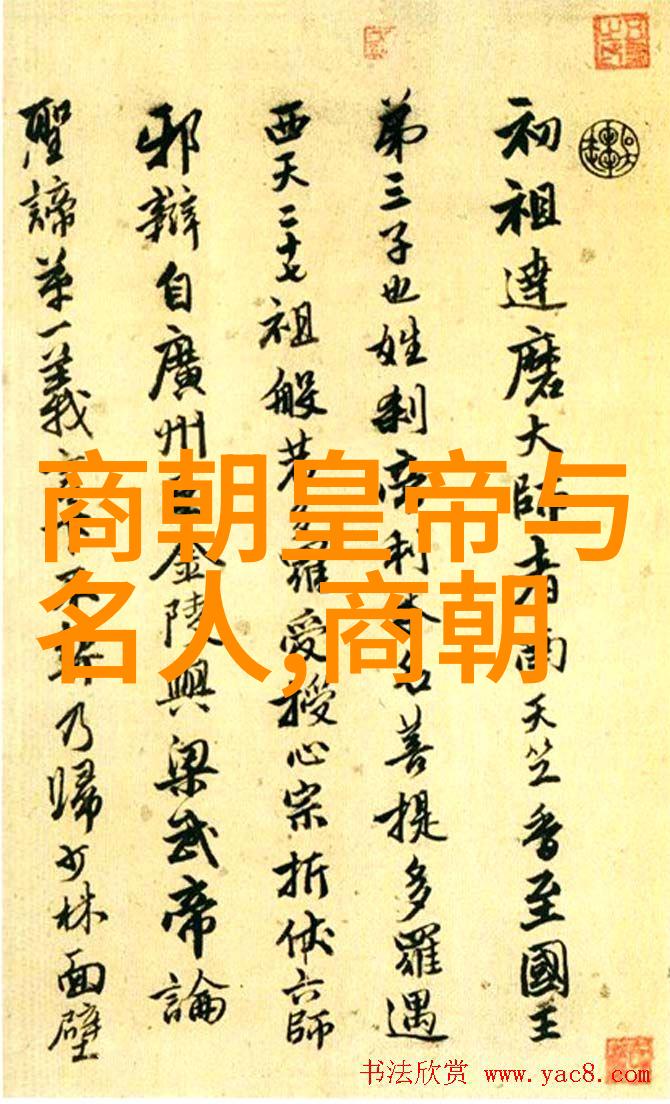 初祖達磨大師者南天竺香至國王
第三子也姓刹帝利本名菩提多羅遇
西天二十七祖般若多羅受授心宗折伏六師
邪辯自廣州至金陵與梁武帝論
聖諦第一義不契乃歸少林面壁
商朝皇帝与
名人,商朝
书法欣赏 www.yac8.com